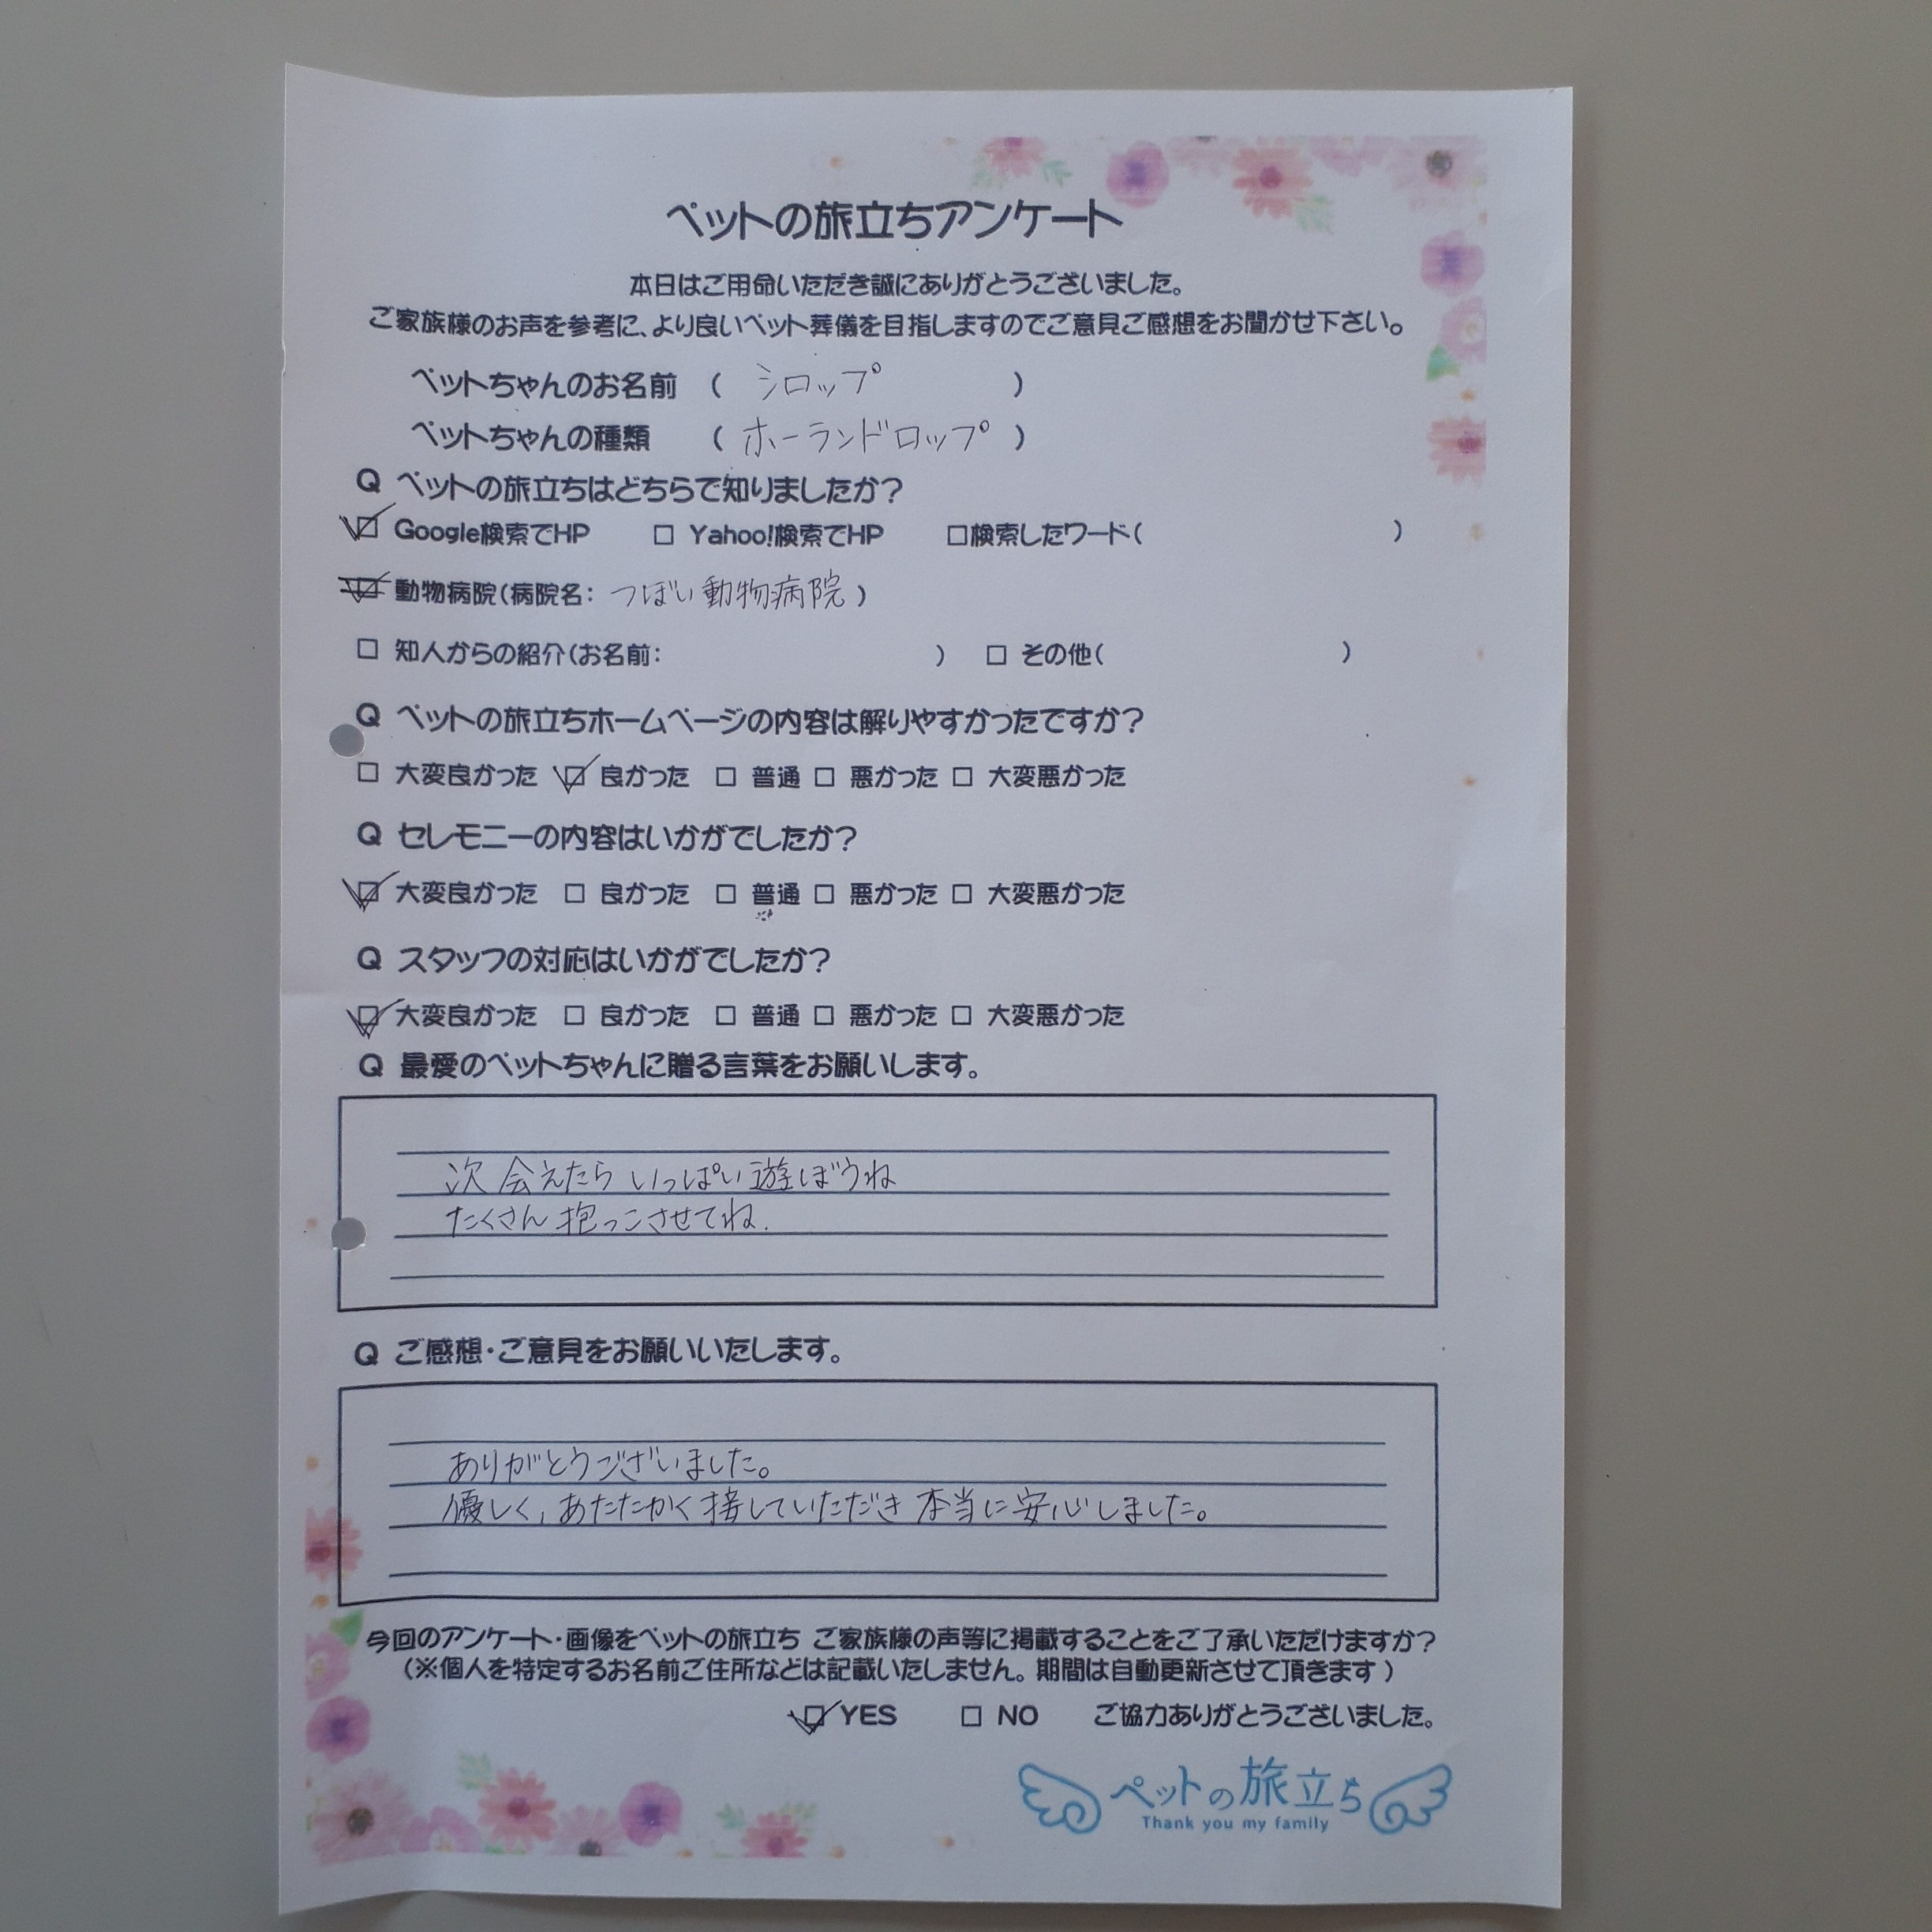 ペットの旅立ちアンケート
本日はご用命いただき誠にありがとうございました。
ご家族様のお声を参考に、より良いペット葬儀を目指しますのでご意見ご感想をお聞かせ下さい。
ペットちゃんのお名前 ( シロップ )
ペットちゃんの種類 ( ホーランドロップ )
Q ペットの旅立ちはどちらで知りましたか?
☑ Google検索でHP □ Yahoo!検索でHP □検索したワード( )
☑ 動物病院(病院名: つぼい動物病院 )
□ 知人からの紹介(お名前: ) □ その他( )
Q ペットの旅立ちホームページの内容は解りやすかったですか?
□ 大変良かった ☑ 良かった □ 普通 □ 悪かった □ 大変悪かった
Q セレモニーの内容はいかがでしたか?
☑ 大変良かった □ 良かった □ 普通 □ 悪かった □ 大変悪かった
Q スタッフの対応はいかがでしたか?
☑ 大変良かった □ 良かった □ 普通 □ 悪かった □ 大変悪かった
Q 最愛のペットちゃんに贈る言葉をお願いします。
次 会えたら いっぱい遊ぼうね
たくさん抱っこさせてね.
Q ご感想・ご意見をお願いいたします。
ありがとうございました。
優しく、あたたかく接していただき 本当に安心しました。
今回のアンケート・画像をペットの旅立ち ご家族様の声等に掲載することをご了承いただけますか?
(※個人を特定するお名前ご住所などは記載いたしません。期間は自動更新させて頂きます)
☑ YES □ NO ご協力ありがとうございました。
ペットの旅立ち
Thank you my family